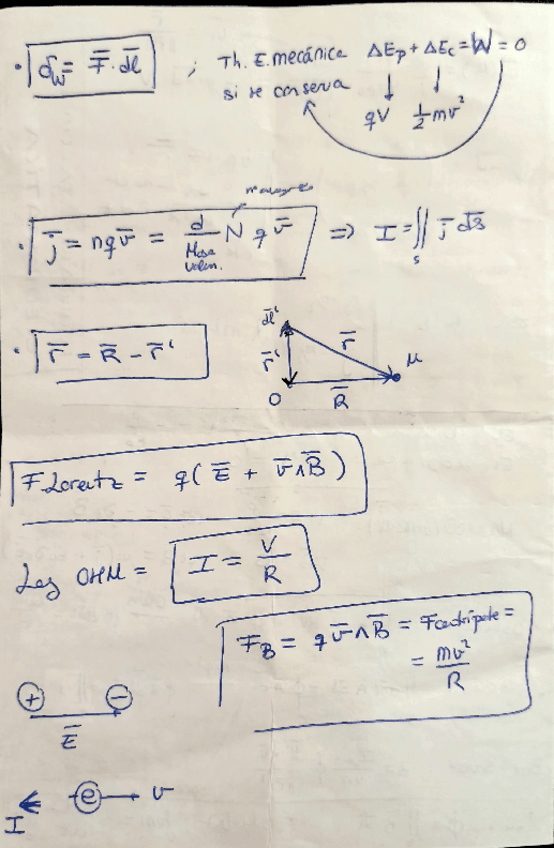 · δw = F̄ · d̄l ; Th. E. mecánica ΔEp + ΔEc = W = 0
si se conserva
qV ½mv²
· j̄ = nqv̄ = d/Masa valen. N q v̄ ⇒ I = ∬s j̄ d̄s
· r̄ = R̄ - r̄'
d̄l'
r̄' r̄ M
O R̄
F Lorentz = q(Ē + v̄ ∧ B̄)
Ley OHM = I = V/R
FB = q v̄ ∧ B̄ = Fcentrípeta =
= mv²/R
+ −
Ē
e v
I